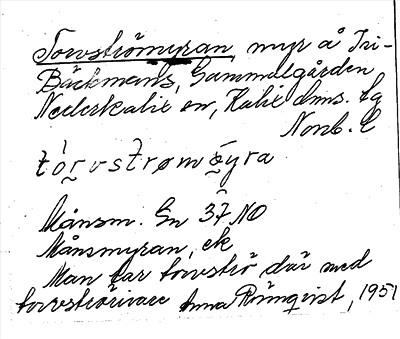 Torvströmyran, myr å Tri-
Bäckmans, Gammelgården
Nederkalix sn, Kalix
Norrb. l
tòrvstrømy̬ra
Månsm. En 37 NO
Månsmyran, ek
Man tar torvströ där med
torvströrivare Anna Rönnqvist, 1951